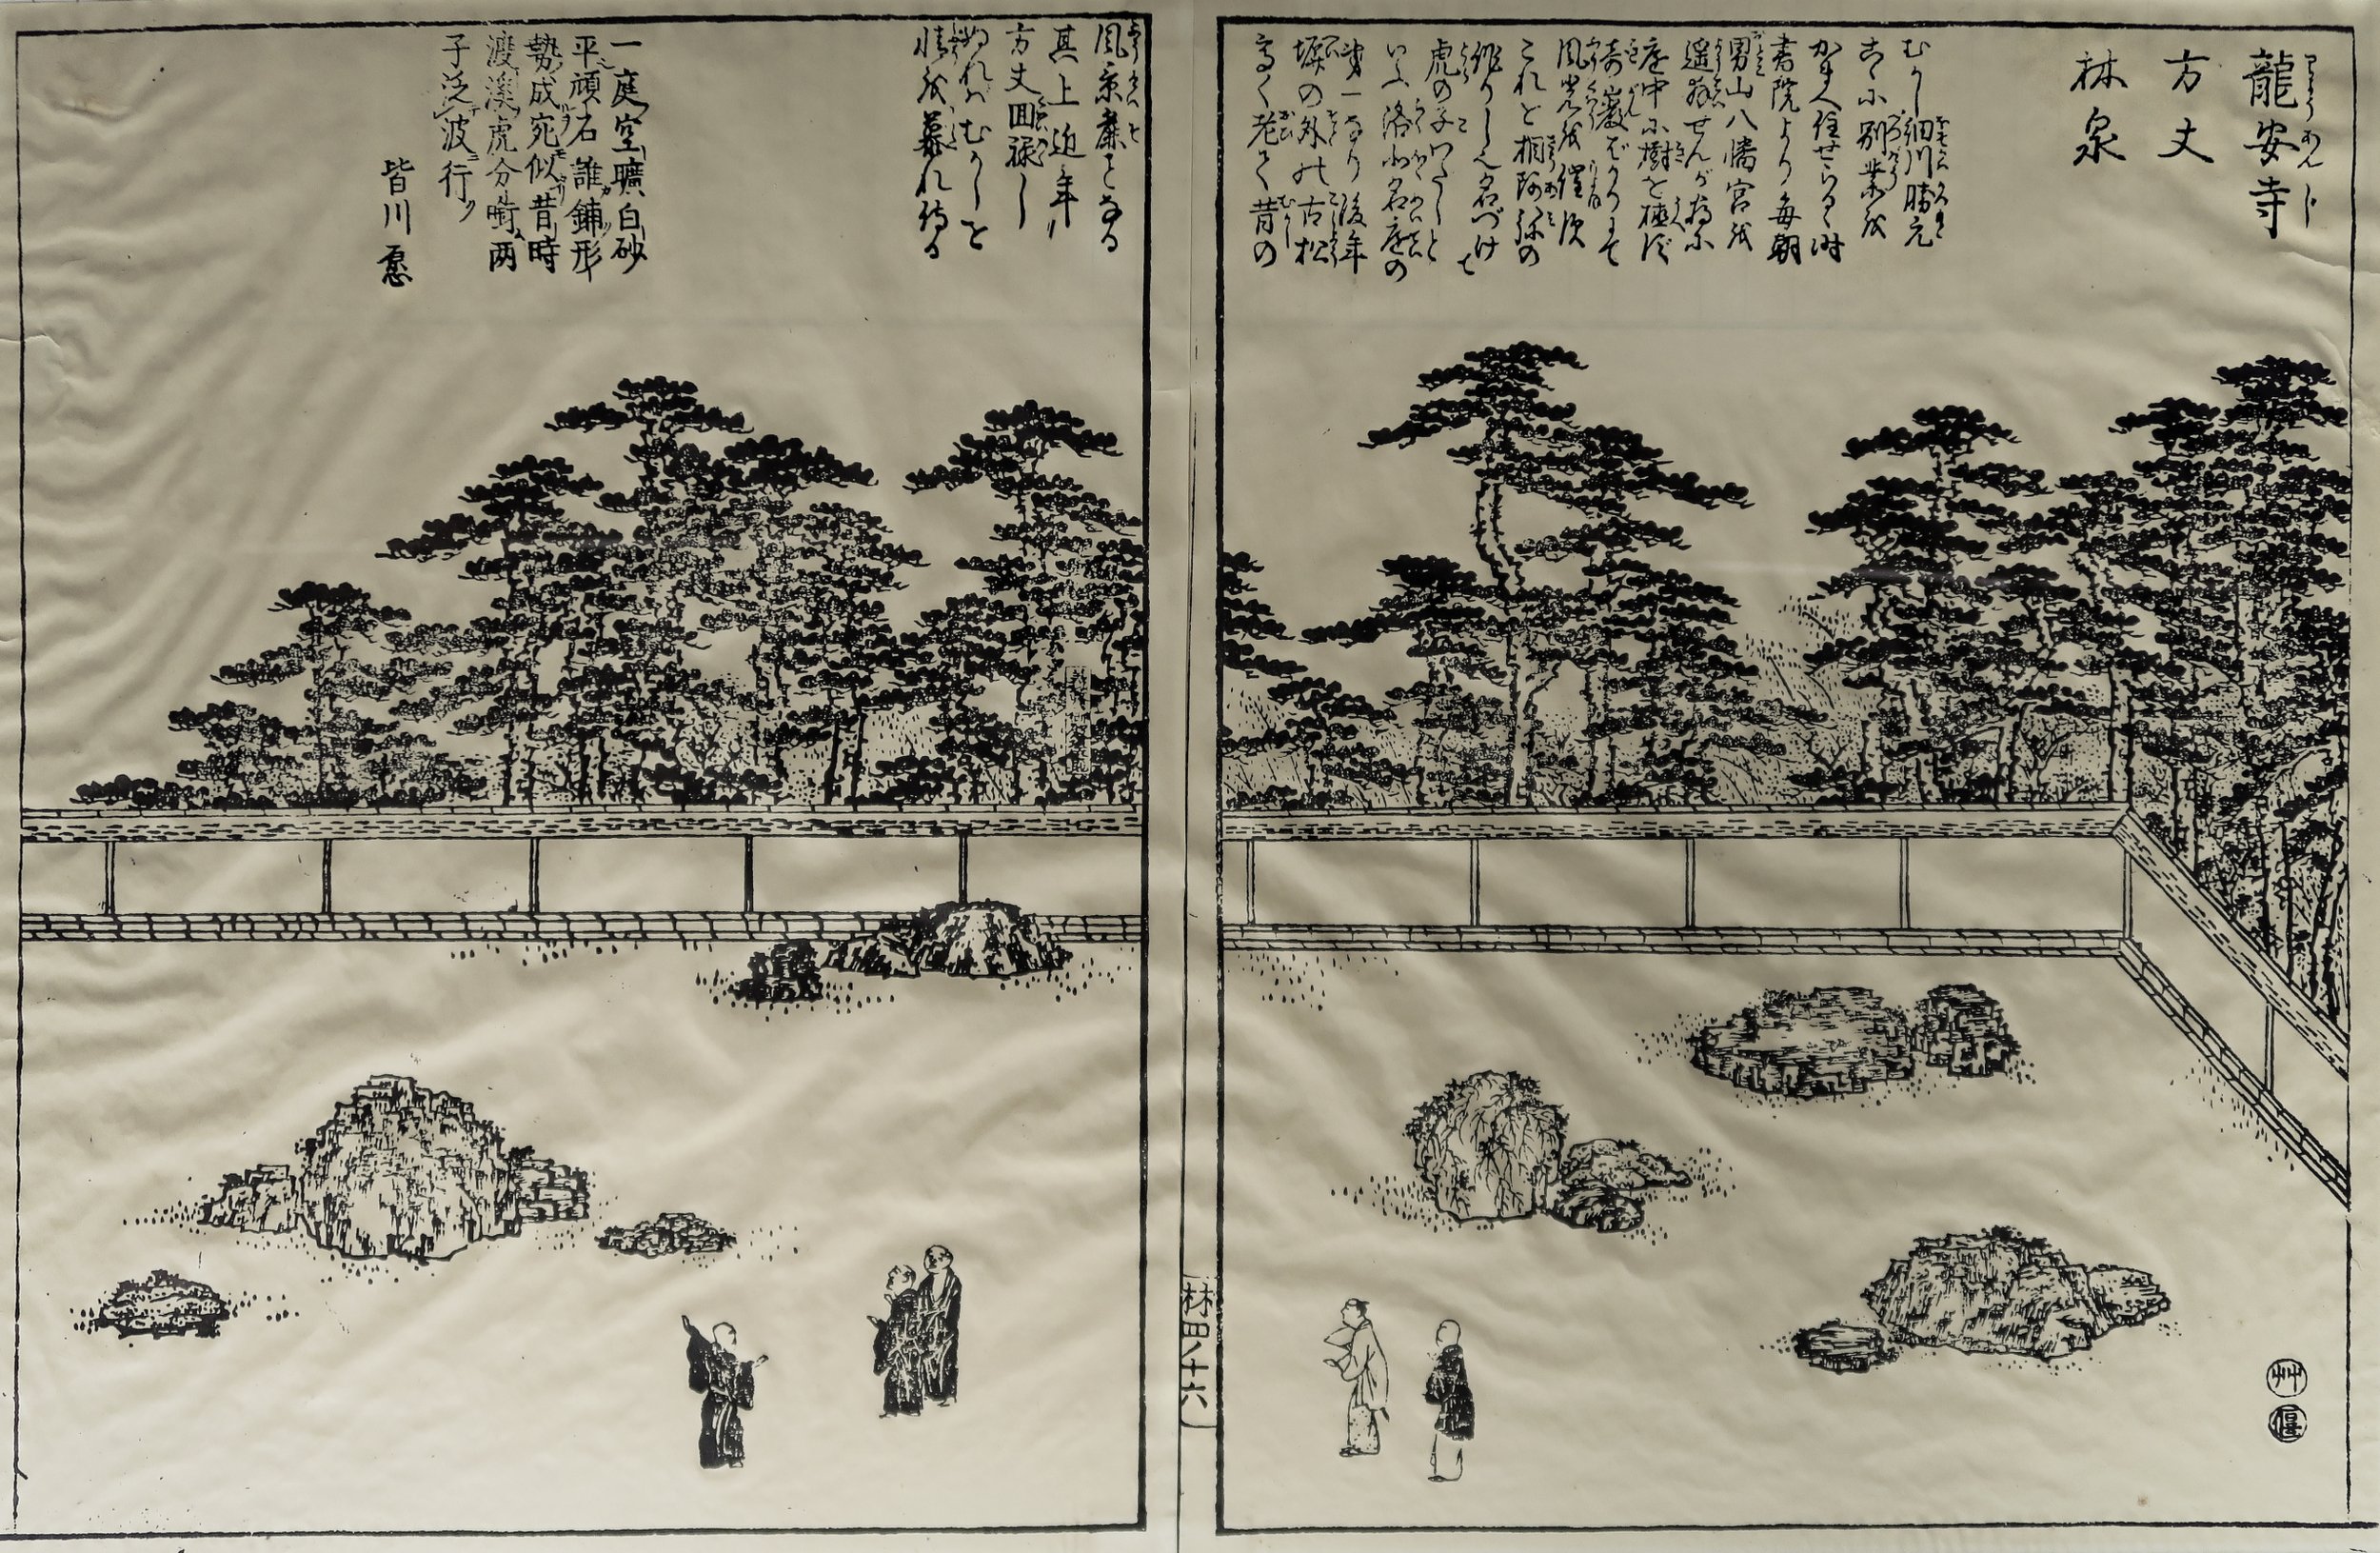 龍安寺
りようあんじ
方丈
林泉
むかし細川勝元
こゝに別業を
かまへ住せらるゝ時
書院より毎朝
男山八幡宮を
遥拜せんが為に
庭中に樹を植ず
奇巌ばかりにて
風光を催す
これを相阿弥の
作りし也名づけて
虎の子わたしと
いふ洛北名庭の
第一なり後年
塀の外の古松
高く老て昔の
風景麁となる
其上近年
方丈回禄し
ぬればむかしを
慕れ侍る
一庭空曠白砂
平頑石誰鋪形
勢成宛似昔時
渡溪虎分両
子泛波行
皆川愿
林四ノ十六
艸
偃